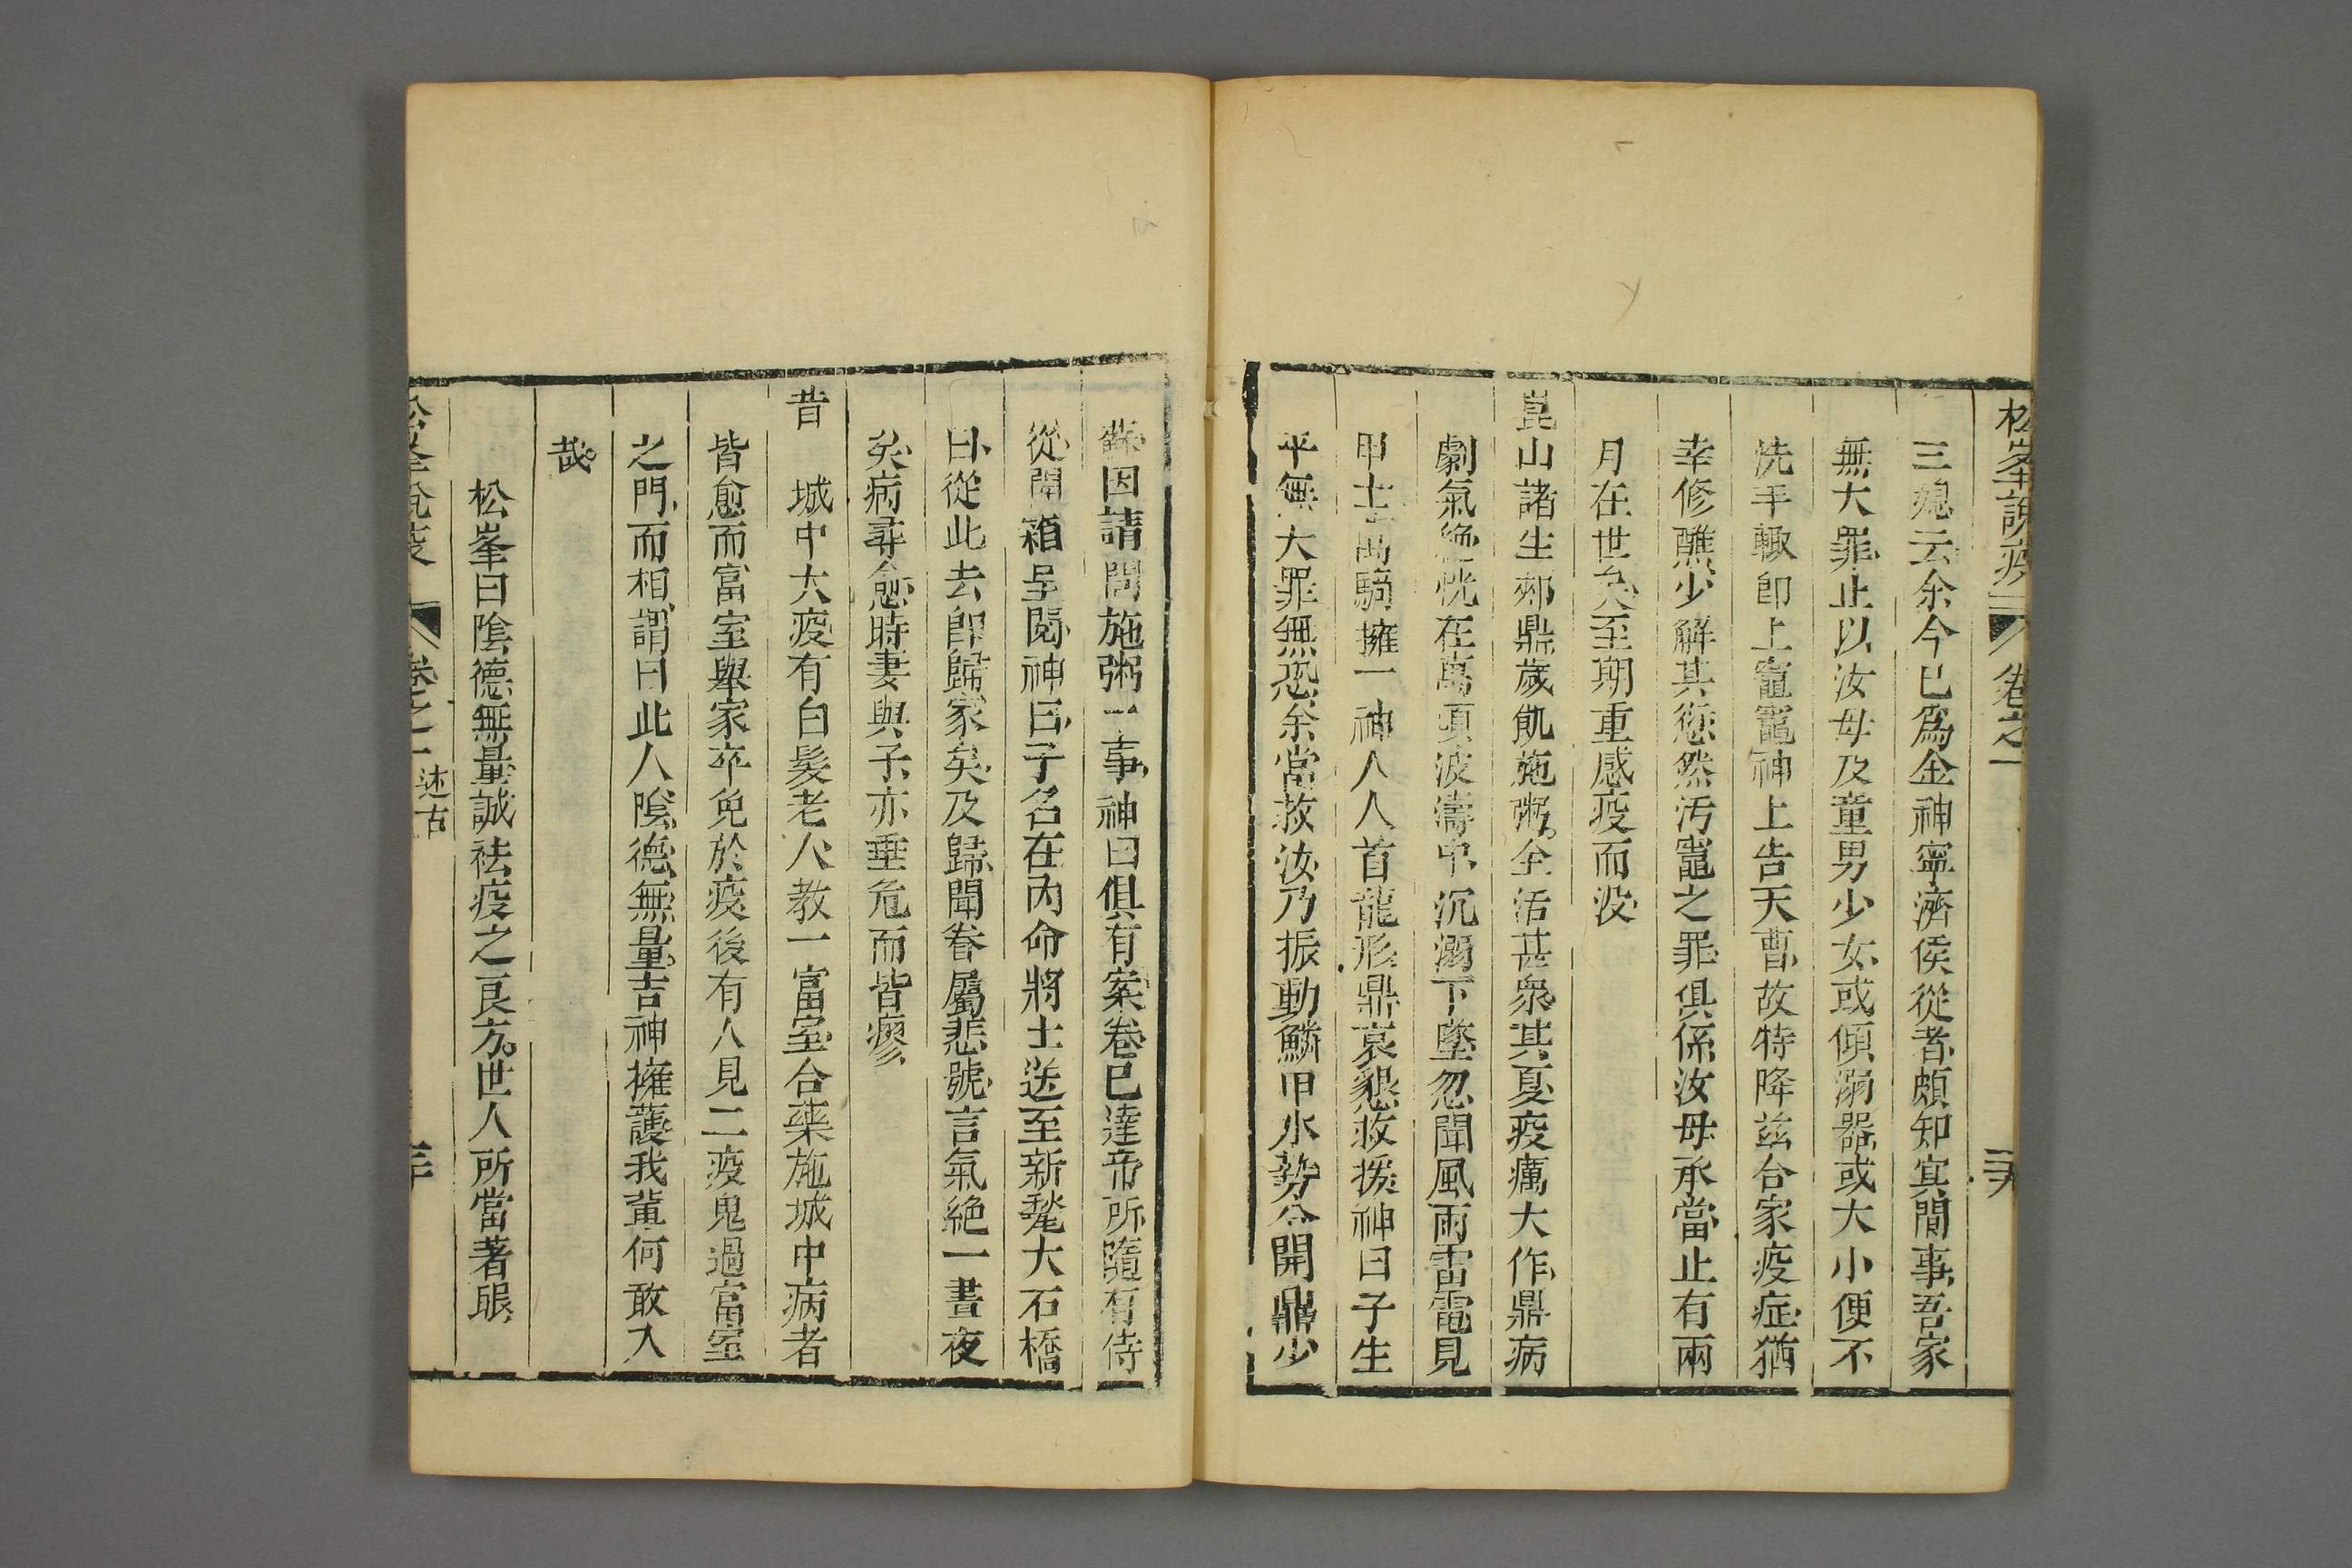 松峯說疫
卷之一
三媳云余今已爲金神寧濟侯從者頗知冥間事吾家
無大罪止以汝母及童男少女或傾溺器或大小便不
洗手輙卽上竈竈神上告天曹故特降兹合家疫症猶
幸修醮少解其愆然汚竈之罪俱係汝母承當止有兩
月在世矣至期重感疫而没
崑山諸生鄭鼎歲飢施粥全活甚衆其夏疫癘大作鼎病
劇氣絶恍在萬頃波濤中沉溺下墜忽聞風雨雷電見
甲士萬騎擁一神人人首龍形鼎哀懇救援神曰子生
平無大罪無恐余當救汝乃振動鱗甲水勢分開鼎少
蘇因請問施粥一事神曰俱有案卷已達帝所隨有侍
從開箱呈閱神曰子名在内命將士送至新甃大石橋
曰從此去卽歸家矣及歸聞眷屬悲號言氣絶一晝夜
矣病尋愈時妻與子亦垂危而皆瘳
昔 城中大疫有白髮老人教一富室合藥施城中病者
皆愈而富室舉家卒免於疫後有人見二疫鬼過富室
之門而相謂曰此人陰德無量吉神擁護我輩何敢入
哉
松峯曰陰德無量誠祛疫之良方世人所當著眼
松峯說疫
卷之一
述古
三十